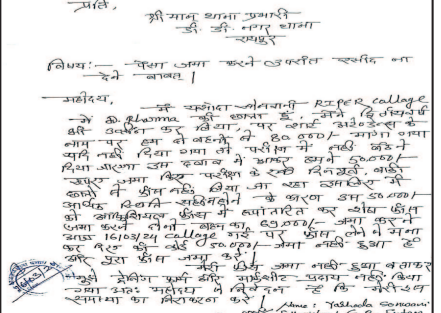 प्रति,
श्रीमान थाना प्रभारी
डी. डी. नगर थाना
रायपुर
विषय:- पैसा जमा करने उपरांत रसीद ना
देने बाबत।
महोदय,
मैं यसोदा सोनवानी RIPER college
में D. Pharma की छात्रा हूं, मैंने द्वितीय वर्ष
की कर लिया, पर शार्ट अटेंडेंस के
नाम पर हम दो बहनों से 80,000/- मांगा गया
यदि नहीं दिया गया तो परीक्षा में नहीं बैठने
दिया जाएगा इस दबाव में आकर हमने 50,000/-
रुपए जमा किए परीक्षा के दिन पूर्व, बाकी
छात्रों से फीस नहीं लिया जा रहा इसलिए मैं
आर्थिक स्थिति सही नहीं होने के कारण इस 50,000/-
को फीस में रूपांतरित कर शेष फीस
जमा करने दोनों बहन का 69,000/- जमा करने
आज 16/03/24 college गई फीस लेने से मना
कर दिए की कोई 50,000/- जमा नहीं हुआ है
और पूरा फीस जमा करें।
मेरी फीस जमा नहीं हुआ बताकर
मुझे ट्रेनिंग फार्म और मार्कशीट प्रदाय नहीं किया
गया अतः महोदय से निवेदन है कि मेरी इस
समस्या का निराकरण करें।
Name: Yashoda Sonwani